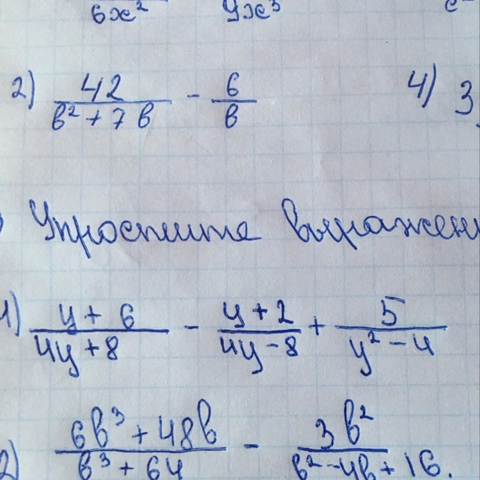 6x² 4x³
2) 42/(в² + 7в) - 6/в 4) 3
Упростите выражен
1) (у + 6)/(4у + 8) - (у + 2)/(4у - 8) + 5/(у² - 4)
2) (6в³ + 48в)/(в³ + 64) - 3в²/(в² - 4в + 16.